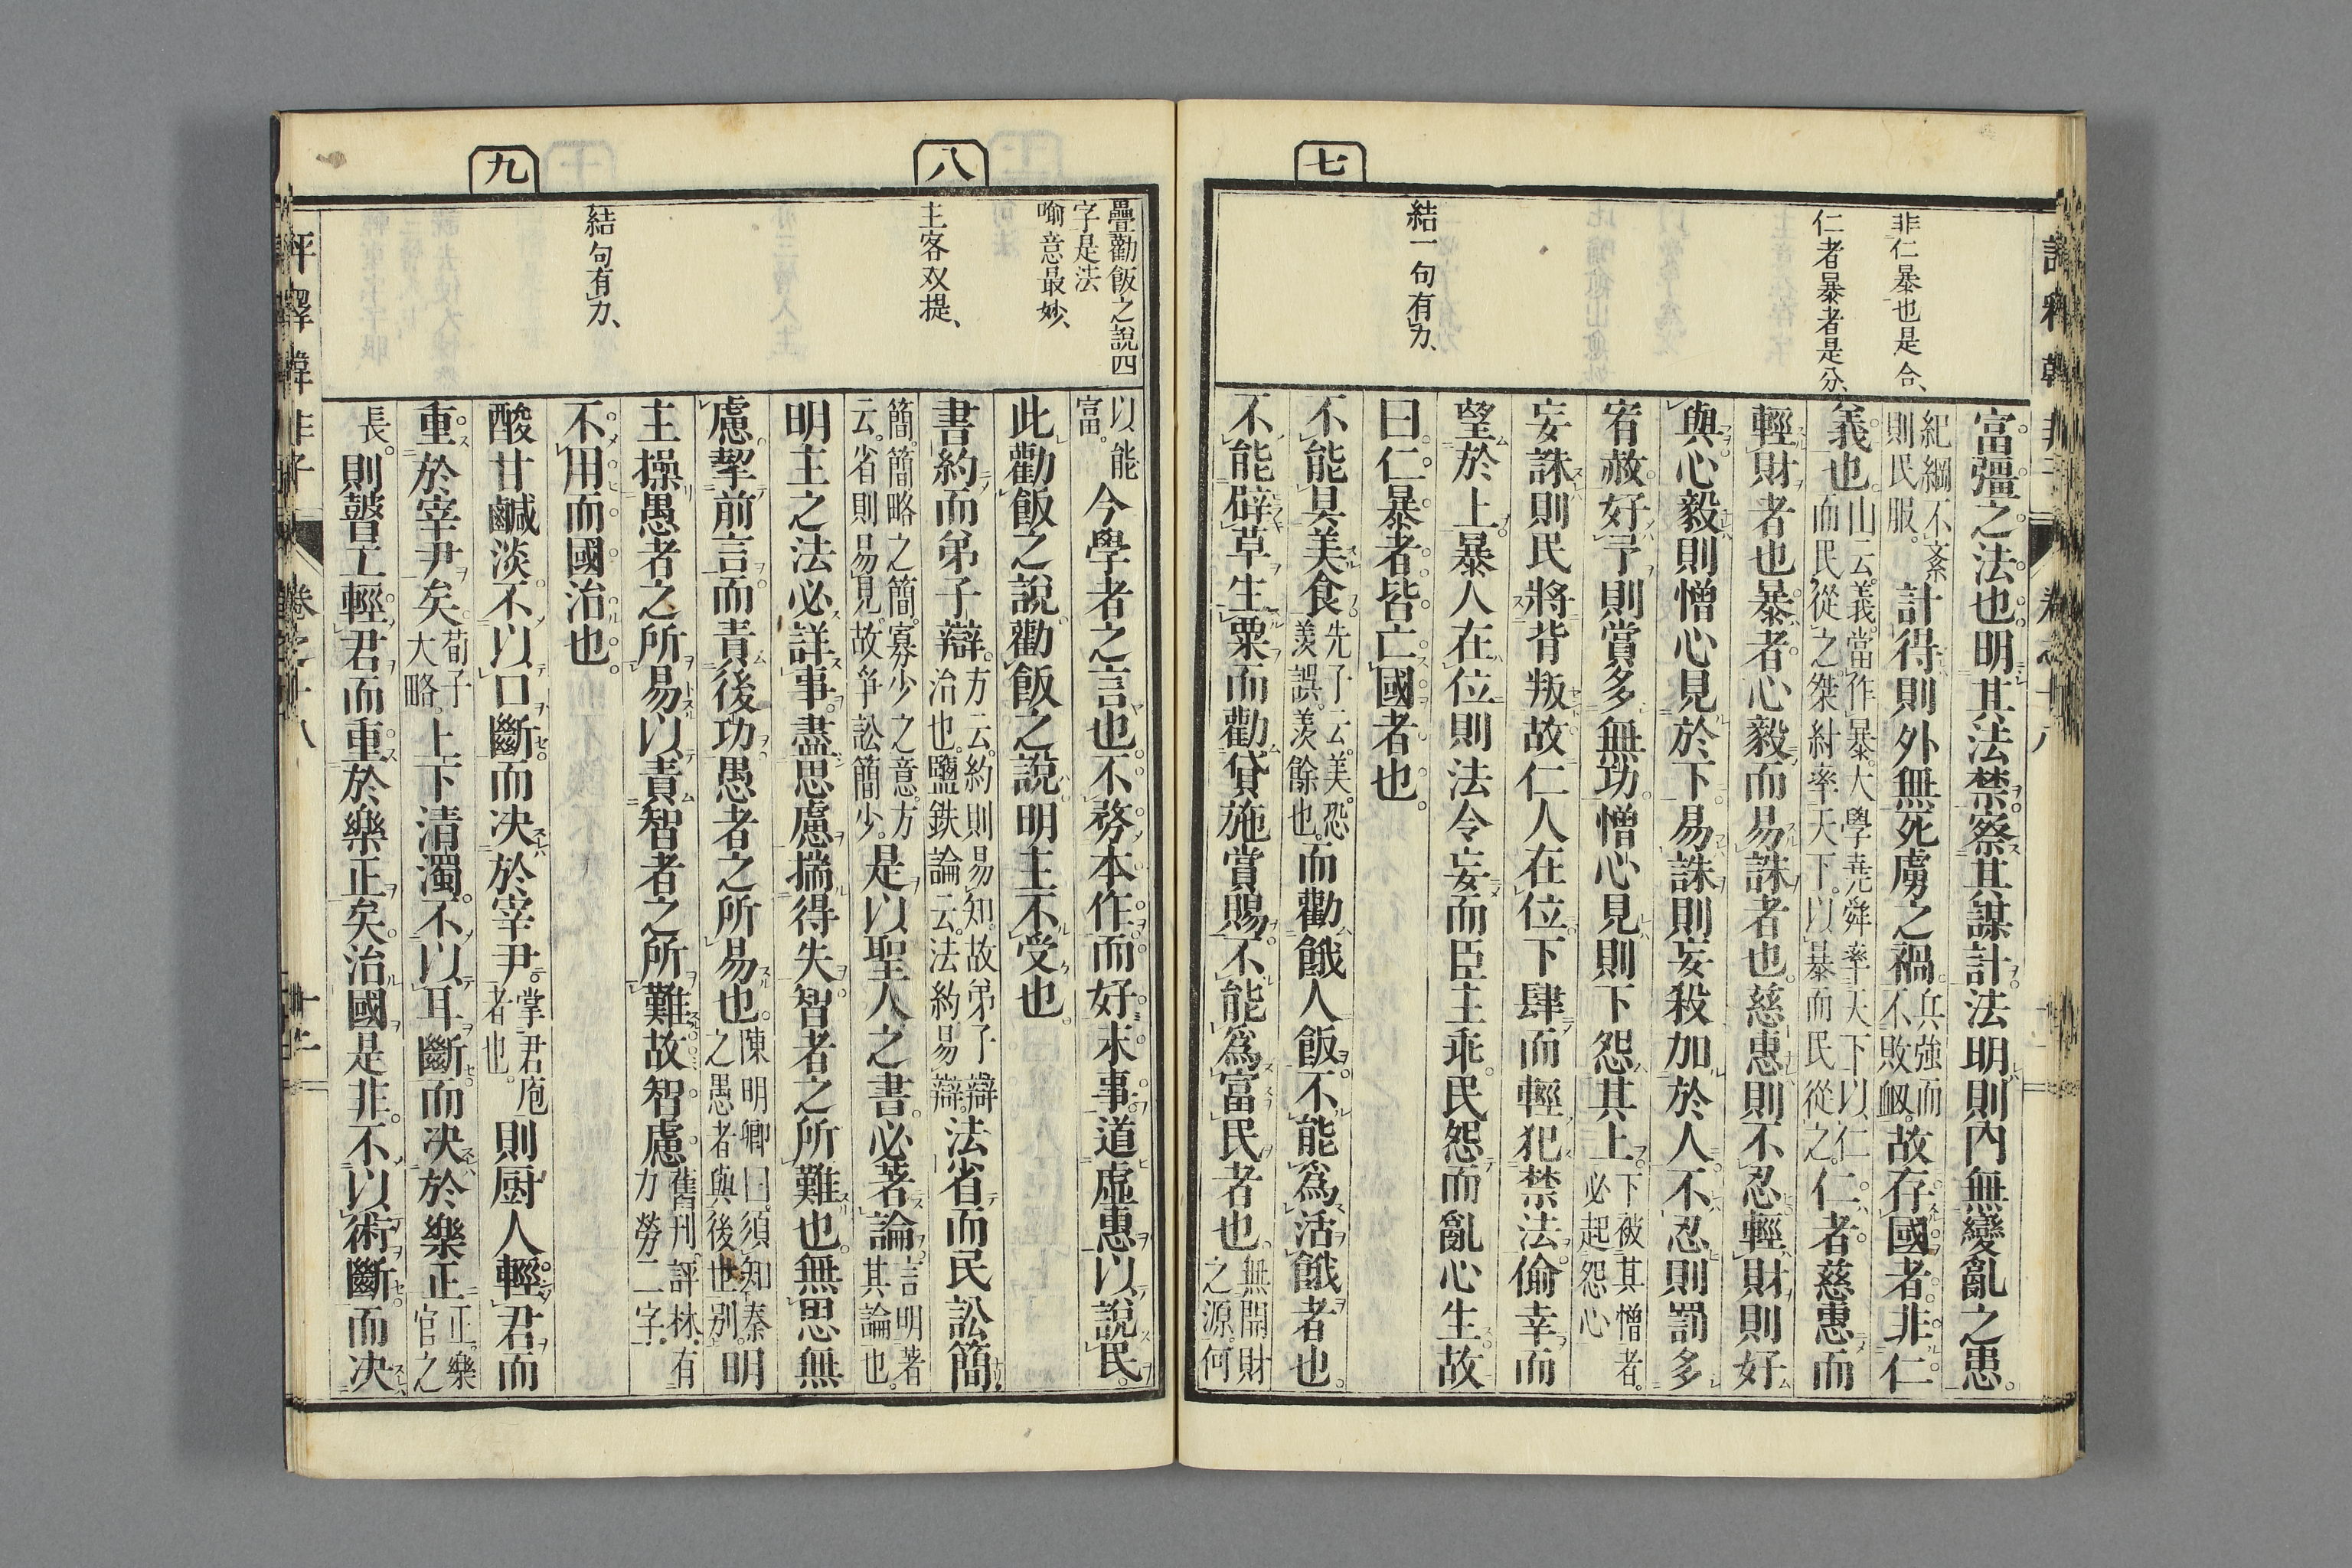 七
非仁暴也是合、
仁者暴者是分、
結一句有力、
富彊之法也明其法禁察其謀計法明則內無變亂之患
紀綱不紊
則民服。
計得則外無死虜之禍
兵強而
不敗衂。
故存國者非仁
義也
山云。義。當作暴。大學堯舜率天下以仁
而民從之桀紂率天下。以暴而民從之。
仁者慈惠而
輕財者也暴者心毅而易誅者也慈惠則不忍輕財則好
與心毅則憎心見於下易誅則妄殺加於人不忍則罰多
宥赦好予則賞多無功憎心見則下怨其上
下被其憎者。
必起怨心
妄誅則民將背叛故仁人在位下肆而輕犯禁法偷幸而
望於上暴人在位則法令妄而臣主乖民怨而亂心生故
曰仁暴者皆亡國者也
不能具美食
先了云。美。恐
羨誤。羨餘也。
而勸餓人飯不能爲活餓者也
不能辟草生粟而勸貸施賞賜不能爲富民者也
無開財
之源。何
八
九
疊勸飯之說四
字是法
喻意最妙、
主客双提、
結句有力、
以能
富。
今學者之言也不務本作而好末事道虛惠以說民
此勸飯之說勸飯之說明主不受也
書約而弟子辯
方云。約則易知。故弟子辯
治也。鹽鉄論云。法約易辯。
法省而民訟簡
簡。簡略之簡。寡少之意。方
云。省則易見。故爭訟簡少。
是以聖人之書必著論
言明著
其論也。
明主之法必詳事盡思慮揣得失智者之所難也無思無
慮挈前言而責後功愚者之所易也
陳明卿曰。須知秦
之愚者與後世別。
明
主操愚者之所易以責智者之所難故智慮
舊刊。評林。有
力勞二字。
不用而國治也
酸甘鹹淡不以口斷而决於宰尹
掌君庖
者也。
則厨人輕君而
重於宰尹矣
荀子
大略。
上下清濁不以耳斷而决於樂正
正。樂
官之
長。
則瞽工輕君而重於樂正矣治國是非不以術斷而决